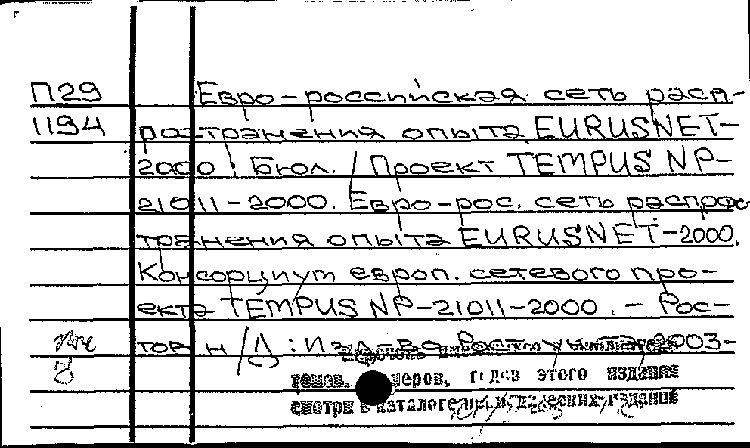 П29
1194
Евро-российская сеть расп-
ространения опыта EURUSNET-
2000: Бюл. / Проект TEMPUS NP-
21011-2000. Евро-рос. сеть распрос
транения опыта EURUSNET-2000.
Консорциум европ. сетевого про-
екта TEMPUS NP-21011-2000. - Рос-
тов н/Д: Изд-во Рост. ун-та, 2003-
томов, номеров, годов этого издания
смотри в каталоге периодических изданий